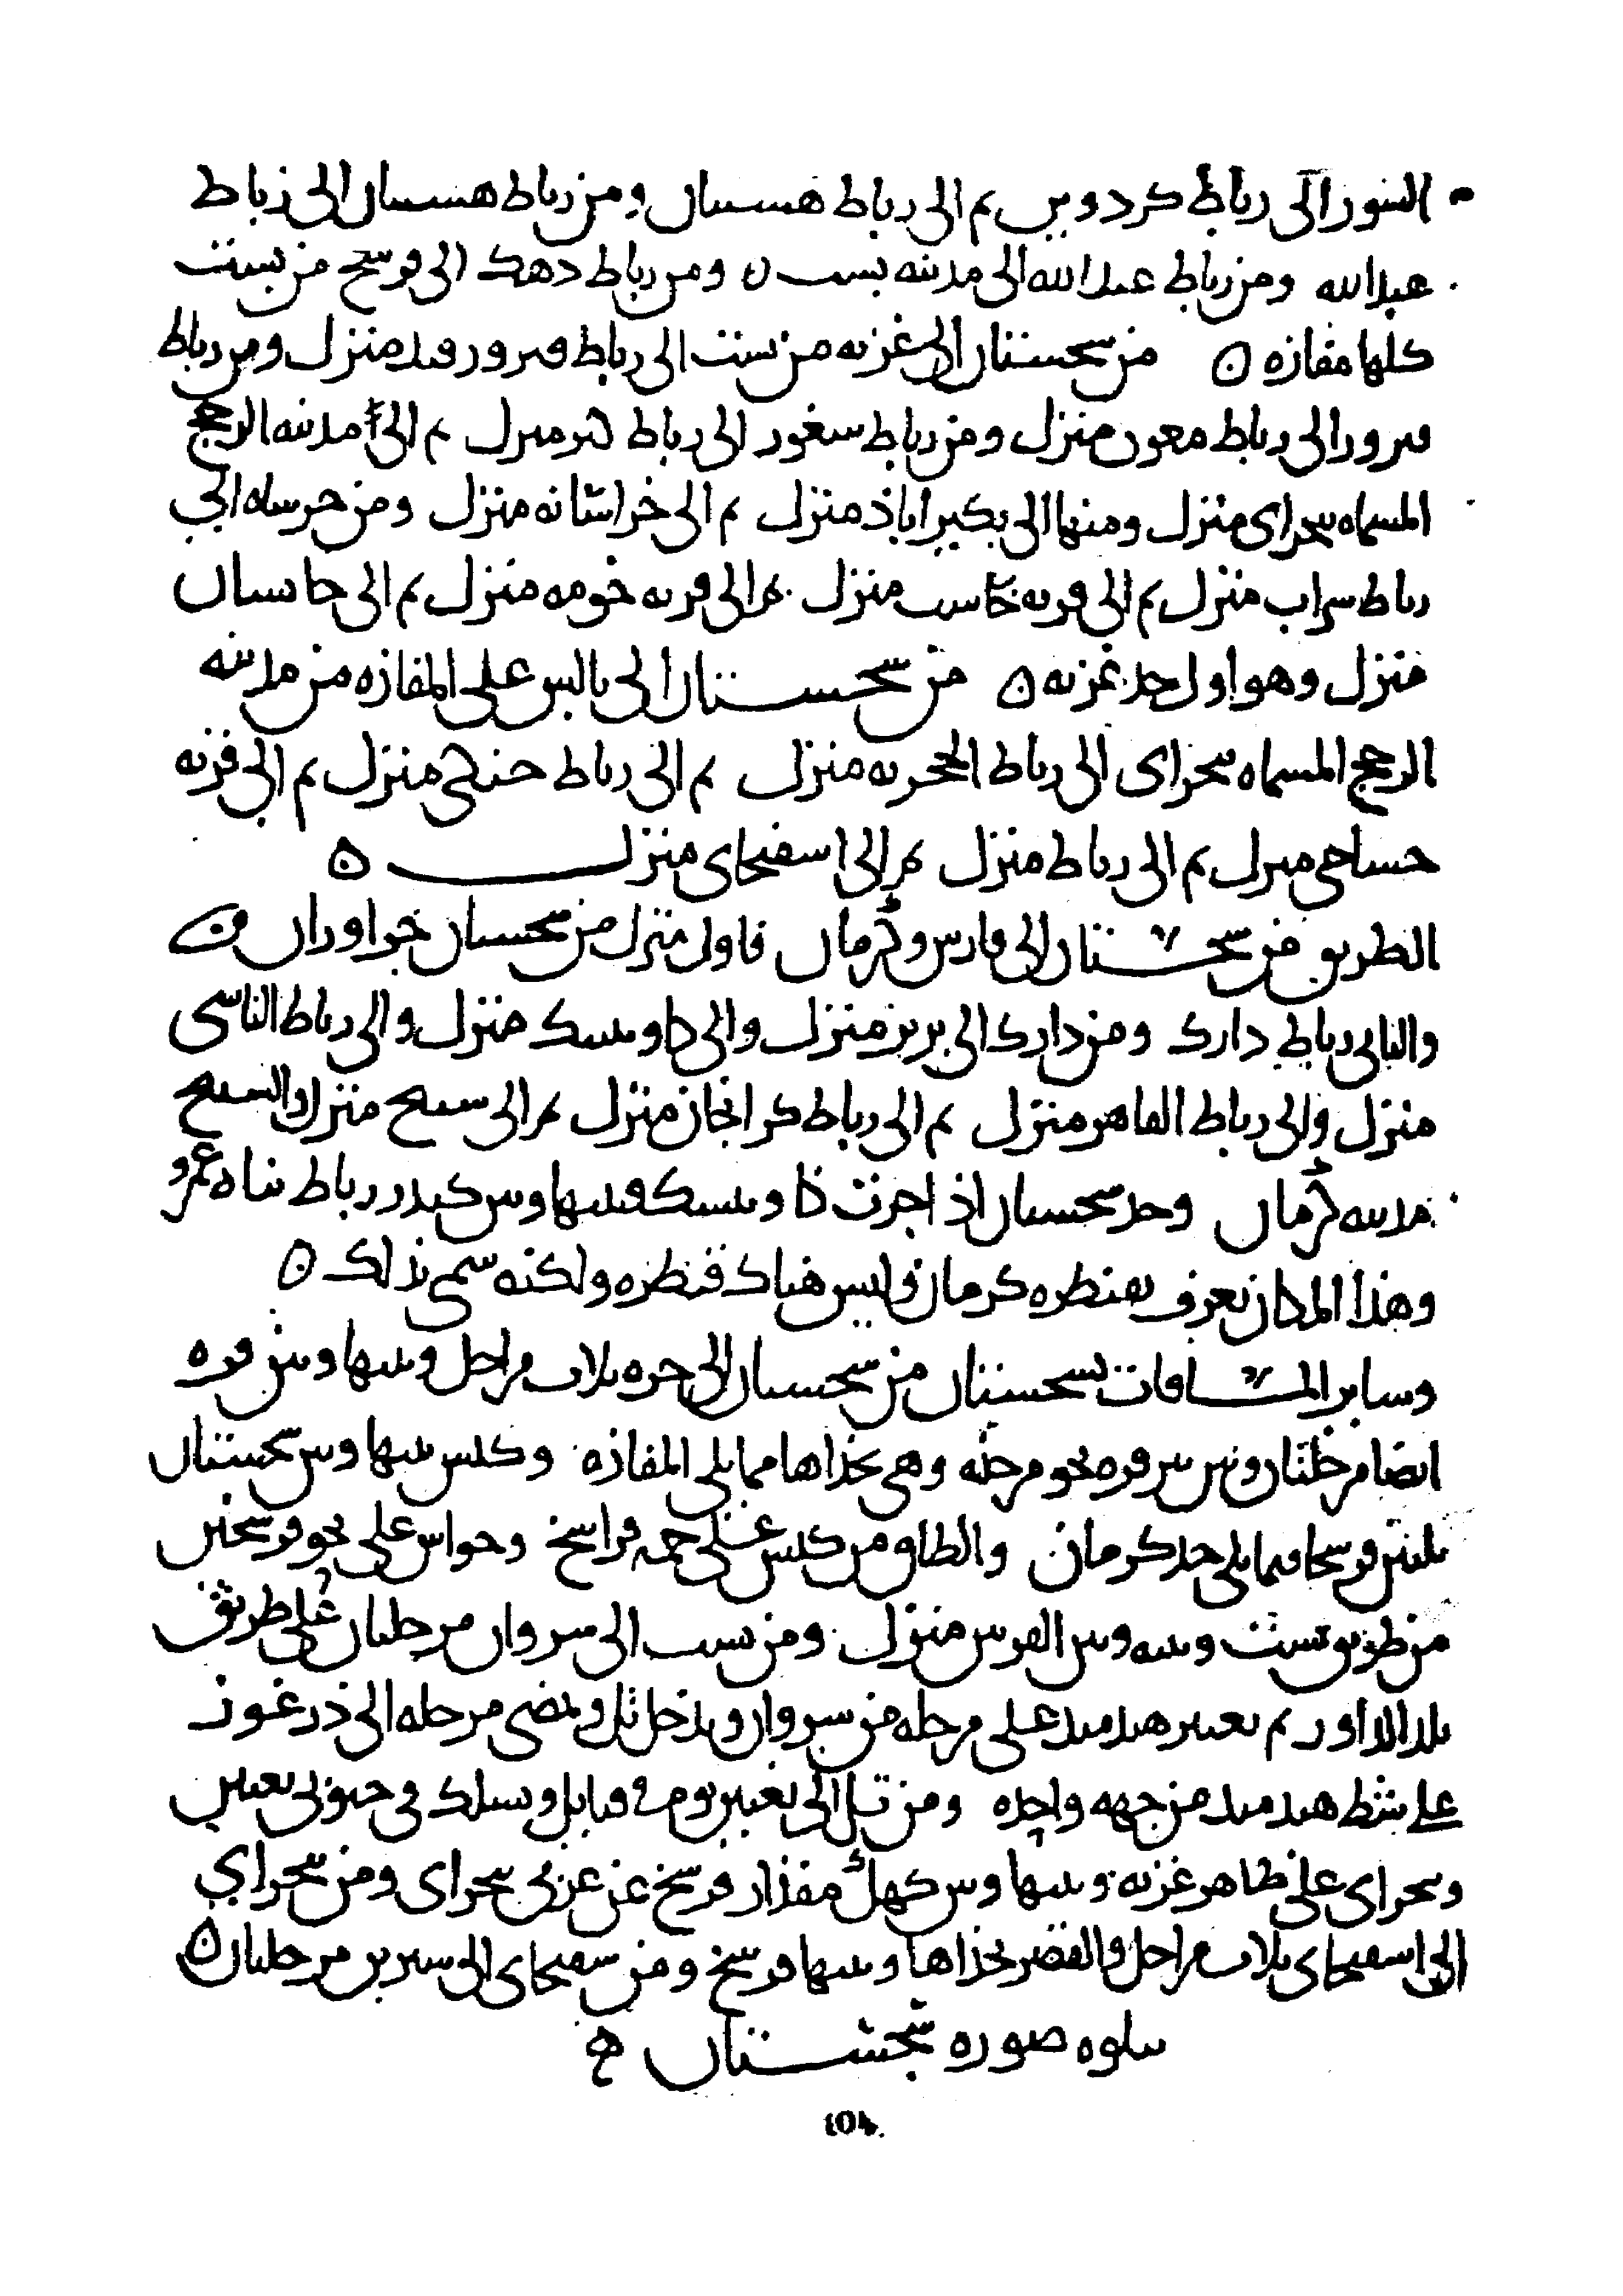 السور الى رباط كردوين ثم الى رباط هستان ومن رباط هستان الى رباط
عبدالله ومن رباط عبدالله الى مدينه بست ه ومن رباط دهك الى فرسخ من بست
كلها مفازه ه من سجستان الى غزنه من بست الى رباط فيروزقند منزل ومن رباط
فيروز الى رباط معون منزل ومن رباط سغور الى رباط كثر منزل ثم الى مدينه الرخج
المسماه بنجواى منزل ومنها الى بكيراباذ منزل ثم الى خراسانه منزل ومن خرسانه الى
رباط سراب منزل ثم الى قريه منزل ثم الى قريه خومه منزل ثم الى خابسان
منزل وهو اول حد غزنه ه من سجستان الى بالس على المفازه من مدينه
الرخج المسماه بنجواى الى رباط الحجريه منزل ثم الى رباط جنكى منزل ثم الى قريه
منزل ثم الى رباط منزل ثم الى اسفنجاى منزل ه
الطريق من سجستان الى فارس وكرمان فاول منزل من سجستان خواوران
والثانى رباط دارك ومن دارك الى برين منزل والى كاونيسك منزل والى رباط الناسى
منزل والى رباط القاهر منزل ثم الى رباط كرانخان منزل ثم الى سنيج منزل والسنيج
مدينه كرمان وحد سجستان اذا جزت كاونيسك وبينها وبين كندر رباط بناه عمرو
وهذا المكان يعرف بقنطره كرمان وليس هناك قنطره ولكنه سمى بذلك ه
وساير المسافات بسجستان من سجستان الى جزه ثلاث مراحل وبينها وبين فره
ايضا مرحلتان وبين فره نحو مرحله وهى بحذاها مما يلى المفازه وكس بينها وبين سجستان
ثلثين فرسخا مما يلى حد كرمان والطاق من كس على خمسه فراسخ وخواش على نحو فرسخين
من طريق بست وبينه وبين القرنين منزل ومن بست الى سروان مرحلتان على طريق
بلد الداور ثم تعبر هيدمند على مرحله من سروان وتدخل تل وتمضى مرحله الى درغور
على شط هيدمند من جهه واحده ومن تل الى بغنين يوم فى قبايل ويسلك فى جنوبى بغنين
وبنجواى على ظاهر غزنه وبينها وبين كهك مقدار فرسخ عن غربى بنجواى ومن بنجواي
الى اسفنجاى ثلاث مراحل والقصر بحذاها وبينها فرسخ ومن سفنجاى الى سيرين مرحلتان ه
يتلوه صوره سجستان
404